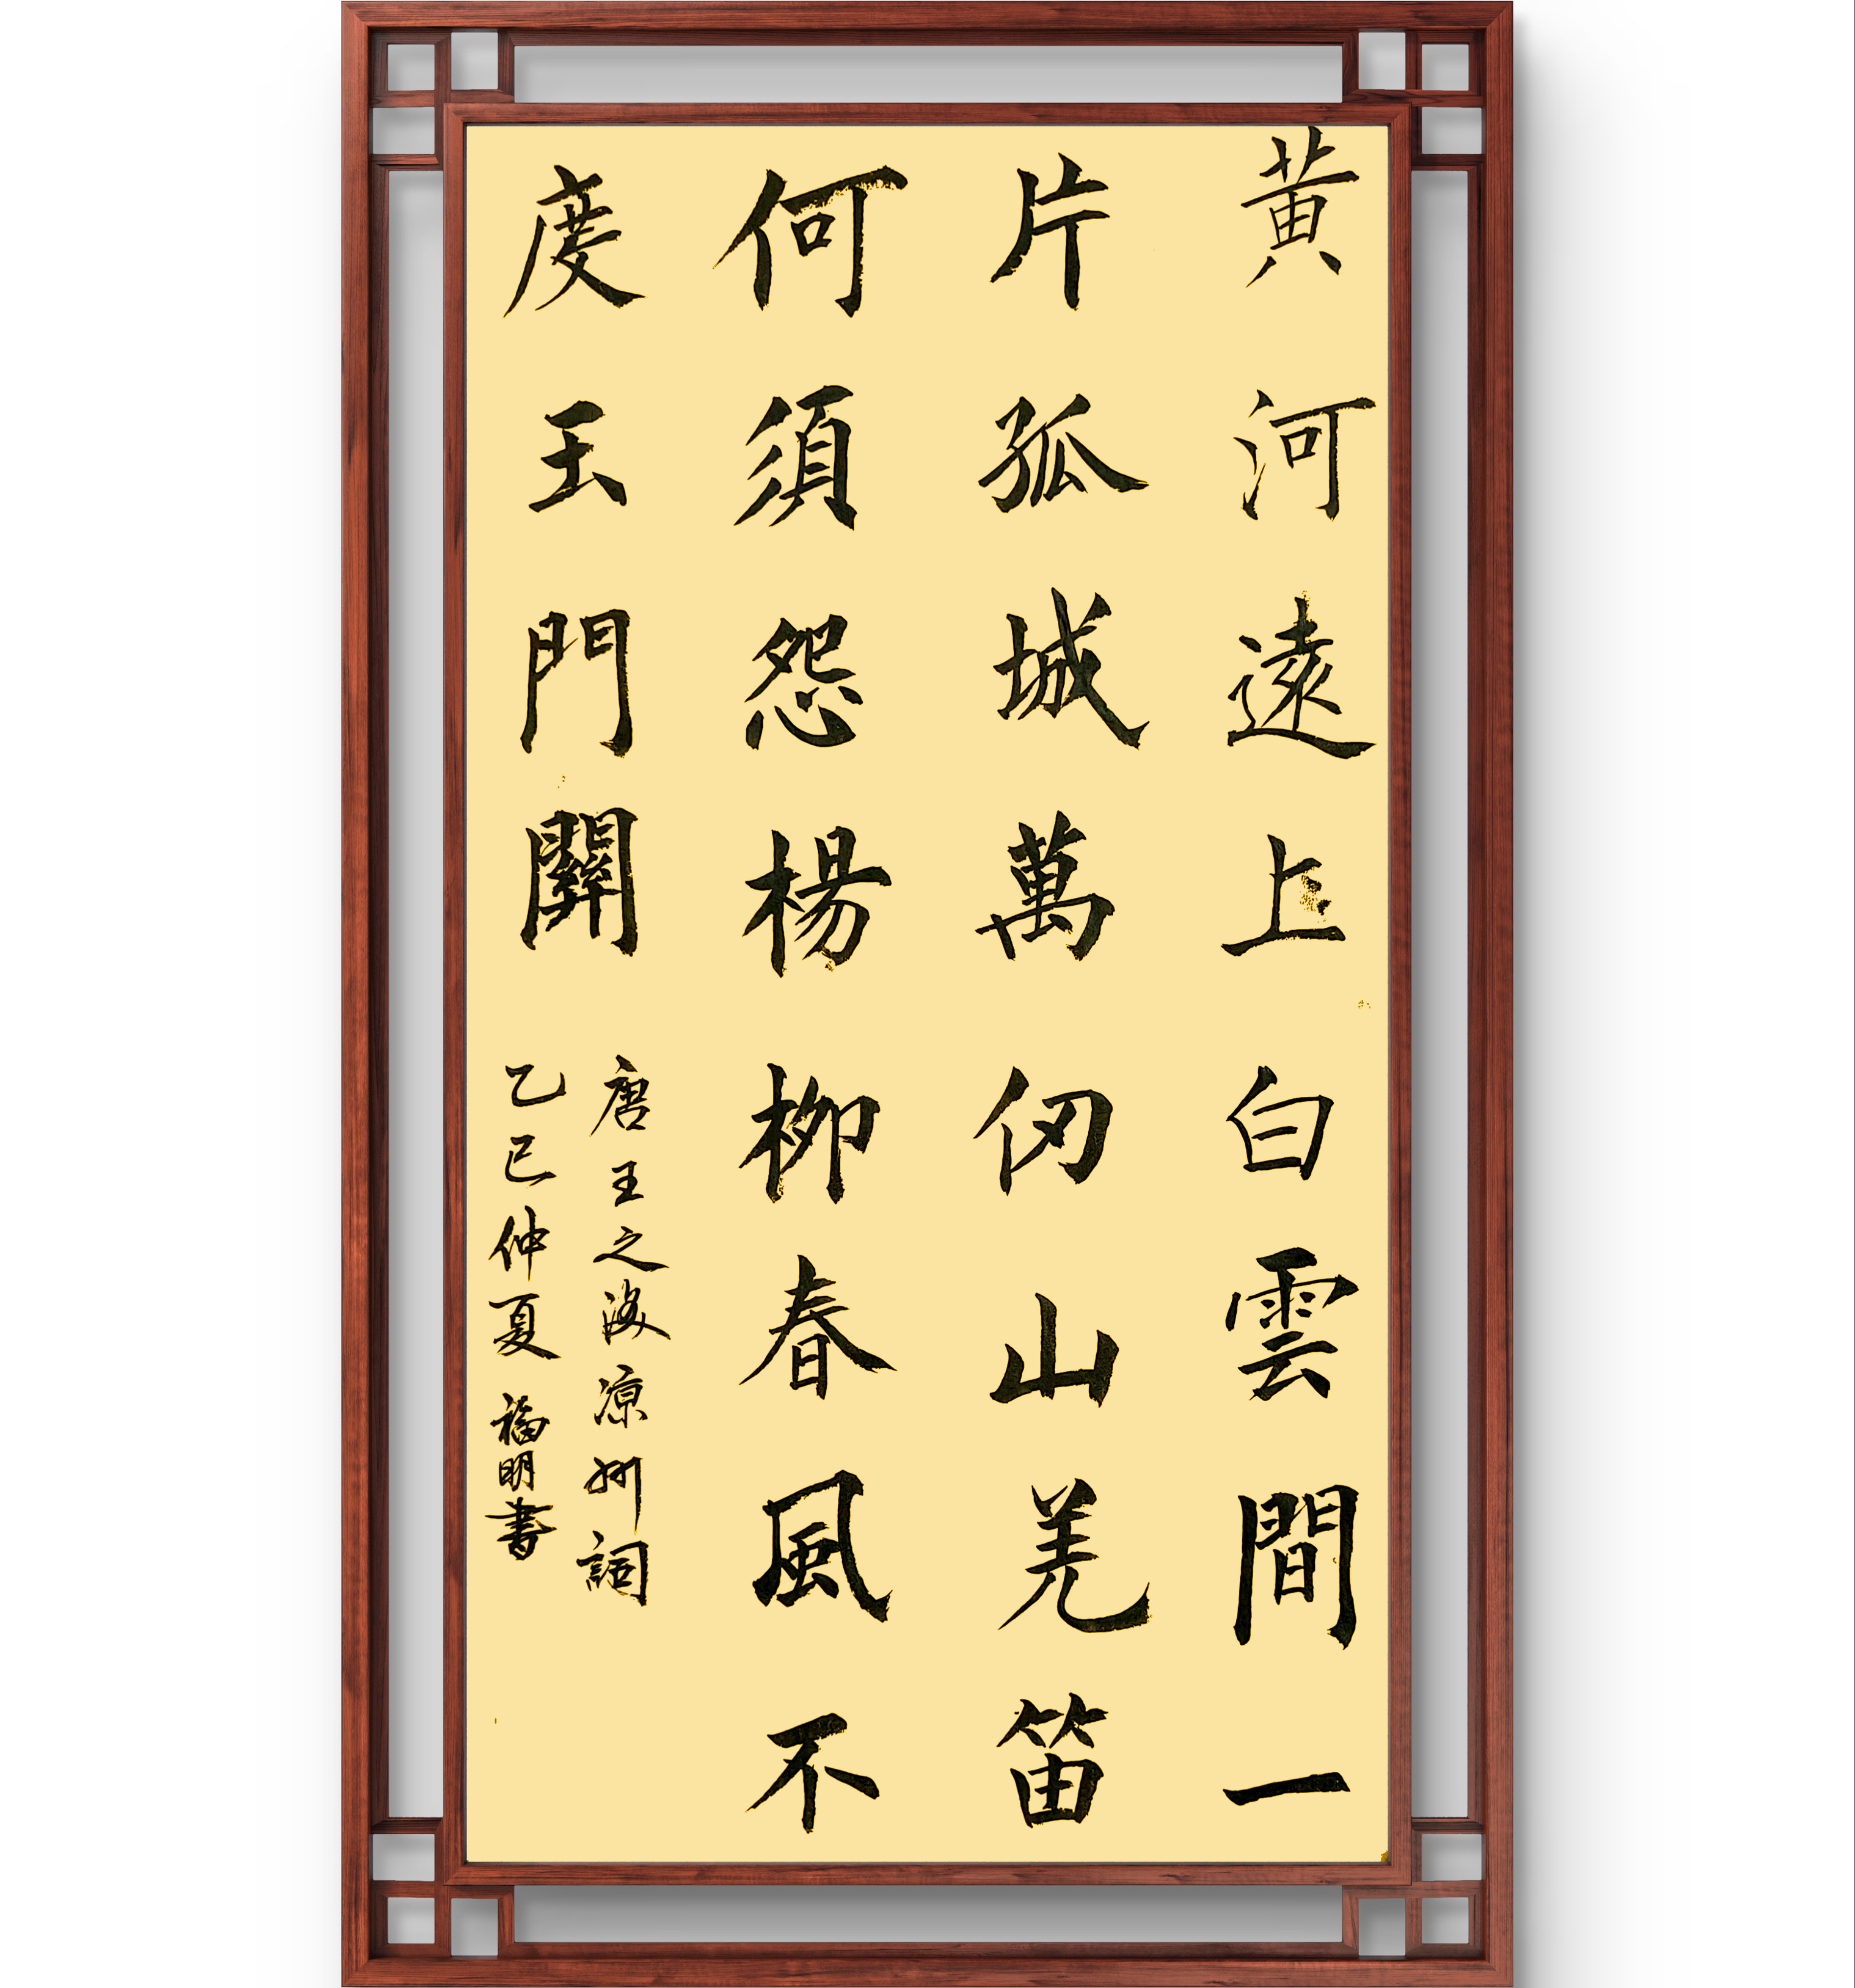 黄河遠上白雲間一
片孤城萬仞山羌笛
何須怨楊柳春風不
度玉門關
唐王之渙凉州詞
乙巳仲夏福明書